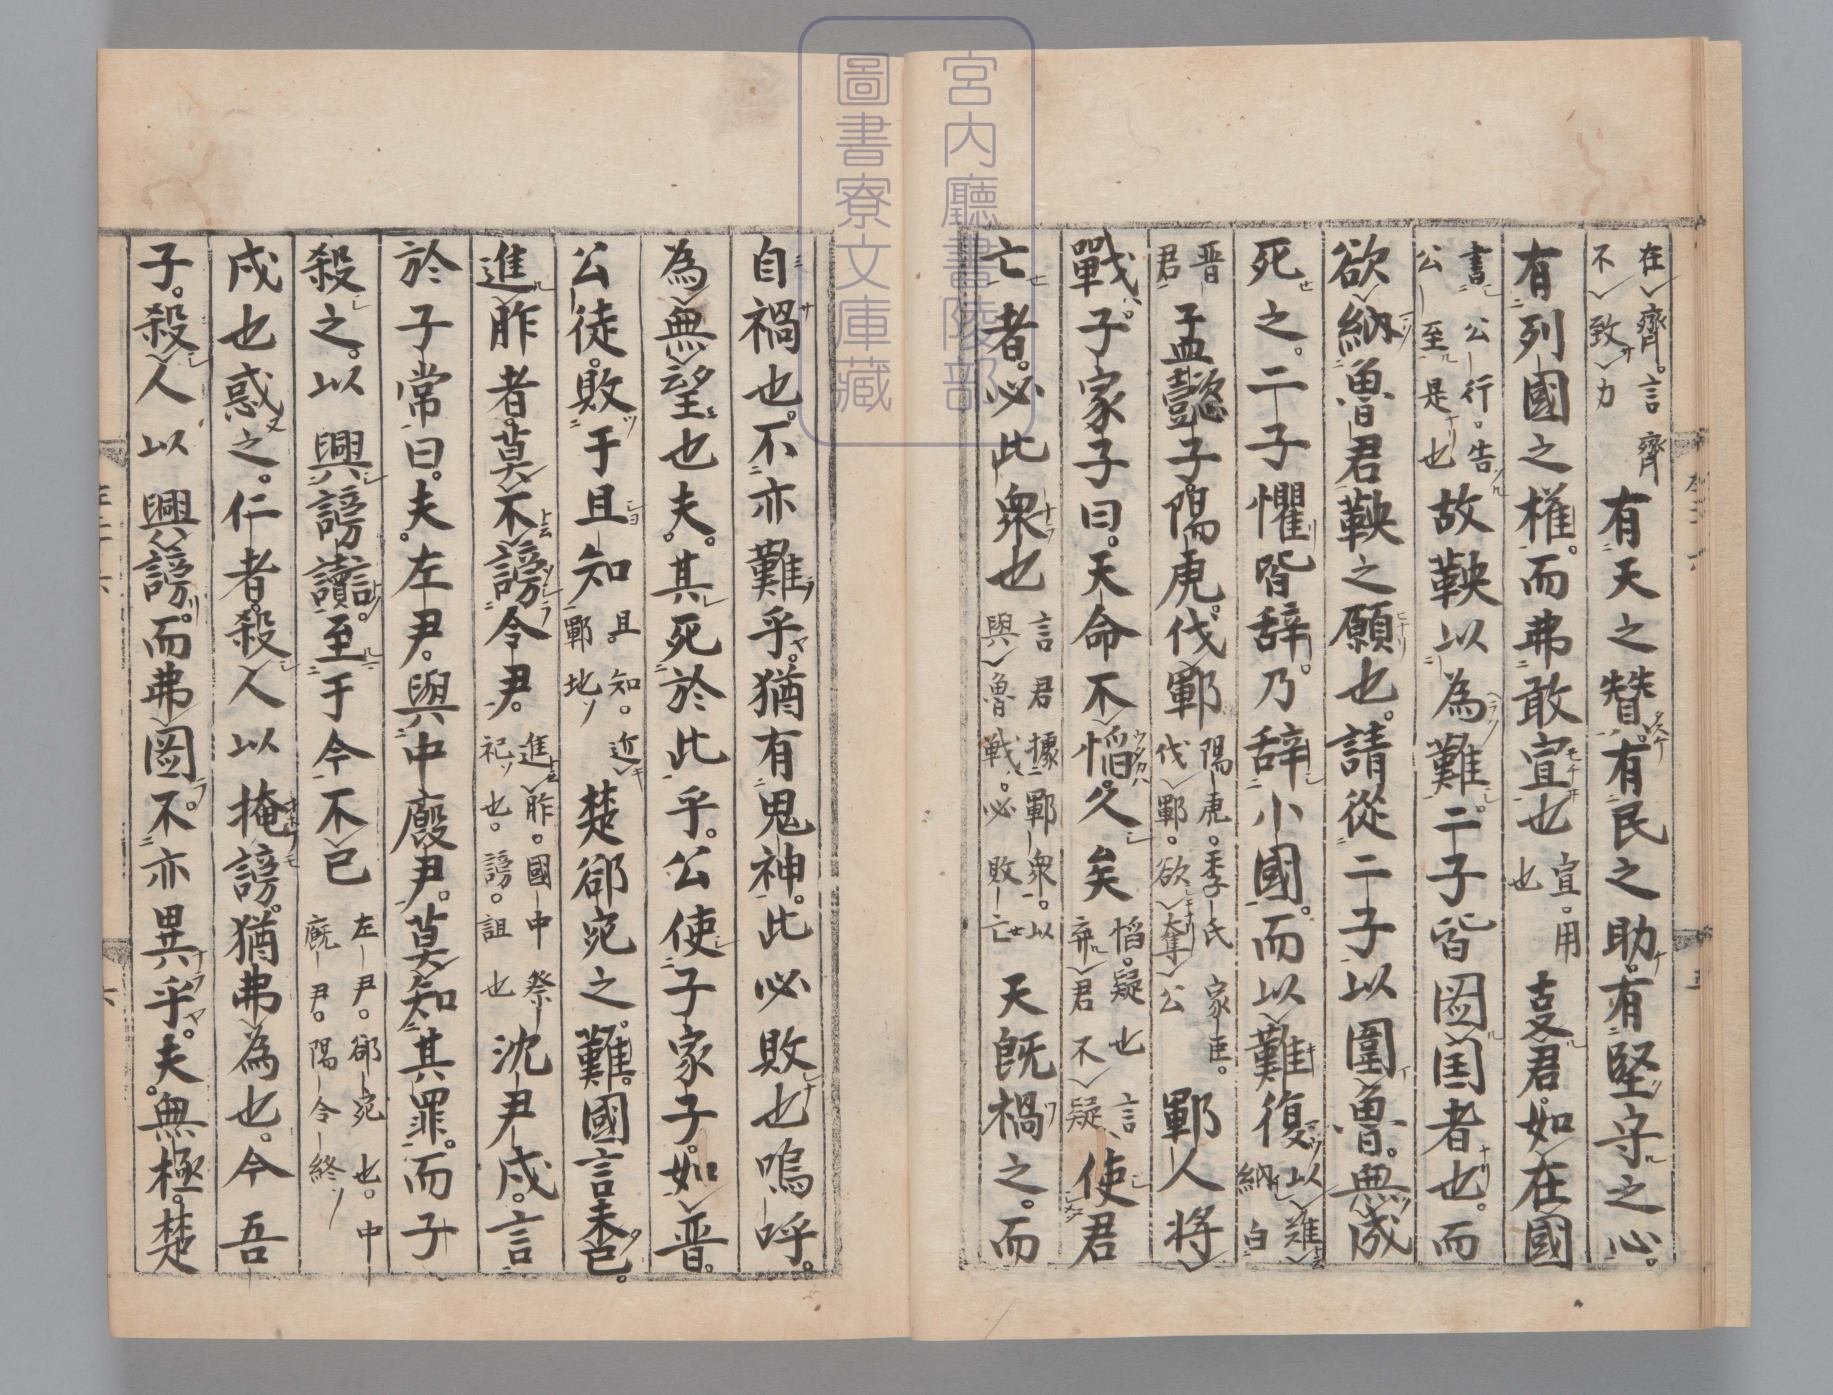 在齊言齊
不致力
有天之賛有民之助有堅守之心
有列國之權而弗敢宣也
宣用
也
事君如在國
書公行告
公至是也
故鞅以為難二子皆图国者也而
欲納魯君鞅之願也請從二子以圍魯無成
死之二子懼皆辞乃辞小國而以難復
以難
納白
晋
君
孟懿子陽虎伐鄆
陽虎季氏家臣
伐鄆欲奪公
鄆人将
戰子家子曰天命不慆久矣
慆疑也言
弃君不疑
使君
亡者必此衆也
言君據鄆衆以
與魯戦必敗亡
天既禍之而
自禍也不亦難乎猶有鬼神此必敗也嗚呼
為無望也夫其死於此乎公使子家子如晋
公徒敗于且知
且知近
鄆地
楚郤宛之難國言未已
進胙者莫不謗令尹
進胙國中祭
祀也謗詛也
沈尹戌言
於子常曰夫左尹與中廄尹莫知其罪而子
殺之以興謗讟至于今不已
左尹郤宛也中
廄尹陽令終
戌也惑之仁者殺人以掩謗猶弗為也今吾
子殺人以興謗而弗图不亦異乎夫無極楚
宮内廳書陵部
圖書寮文庫藏